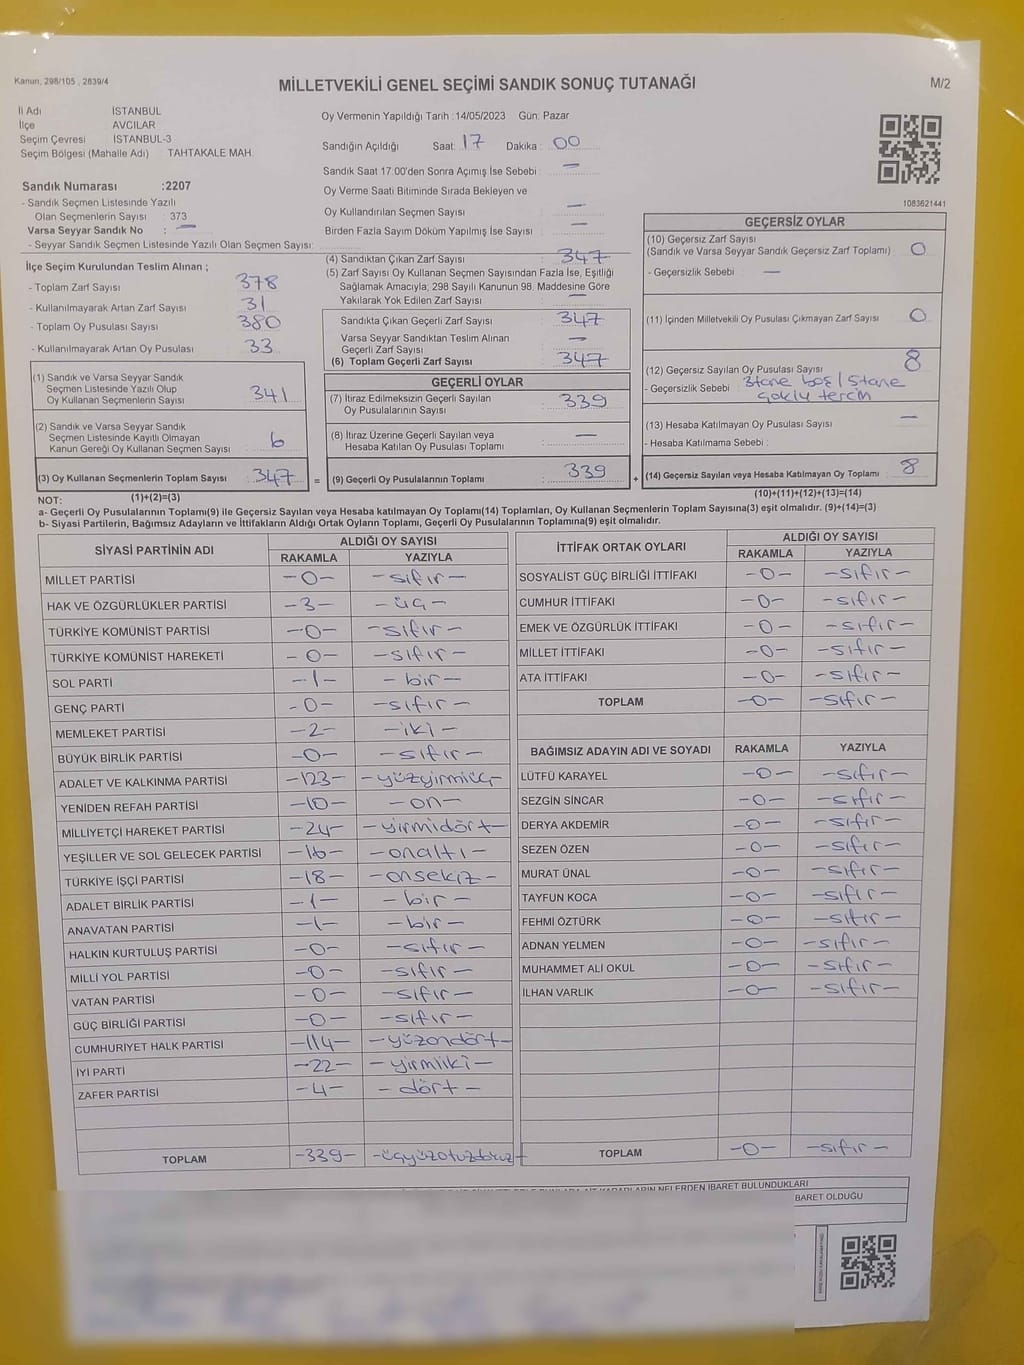 Kanun, 298/105 , 2839/4
MİLLETVEKİLİ GENEL SEÇİMİ SANDIK SONUÇ TUTANAĞI
M/2
İl Adı İSTANBUL
İlçe AVCILAR
Seçim Çevresi İSTANBUL-3
Seçim Bölgesi (Mahalle Adı) : TAHTAKALE MAH.
Oy Vermenin Yapıldığı Tarih :14/05/2023 Gün: Pazar
Sandığın Açıldığı Saat: 17 Dakika : 00
Sandık Saat 17:00'den Sonra Açımış İse Sebebi : —
Oy Verme Saati Bitiminde Sırada Bekleyen ve
Oy Kullandırılan Seçmen Sayısı : —
Birden Fazla Sayım Döküm Yapılmış İse Sayısı : —
Sandık Numarası :2207
- Sandık Seçmen Listesinde Yazılı
Olan Seçmenlerin Sayısı : 373
Varsa Seyyar Sandık No : —
- Seyyar Sandık Seçmen Listesinde Yazılı Olan Seçmen Sayısı:
1083621441
İlçe Seçim Kurulundan Teslim Alınan ;
- Toplam Zarf Sayısı : 378
- Kullanılmayarak Artan Zarf Sayısı : 31
- Toplam Oy Pusulası Sayısı : 380
- Kullanılmayarak Artan Oy Pusulası : 33
(1) Sandık ve Varsa Seyyar Sandık
Seçmen Listesinde Yazılı Olup
Oy Kullanan Seçmenlerin Sayısı : 341
(2) Sandık ve Varsa Seyyar Sandık
Seçmen Listesinde Kayıtlı Olmayan
Kanun Gereği Oy Kullanan Seçmen Sayısı : 6
(3) Oy Kullanan Seçmenlerin Toplam Sayısı : 347
(1)+(2)=(3)
(4) Sandıktan Çıkan Zarf Sayısı : 347
(5) Zarf Sayısı Oy Kullanan Seçmen Sayısından Fazla İse, Eşitliği
Sağlamak Amacıyla; 298 Sayılı Kanunun 98. Maddesine Göre
Yakılarak Yok Edilen Zarf Sayısı : —
Sandıkta Çıkan Geçerli Zarf Sayısı : 347
Varsa Seyyar Sandıktan Teslim Alınan
Geçerli Zarf Sayısı : —
(6) Toplam Geçerli Zarf Sayısı : 347
GEÇERLİ OYLAR
(7) İtiraz Edilmeksizin Geçerli Sayılan
Oy Pusulalarının Sayısı : 339
(8) İtiraz Üzerine Geçerli Sayılan veya
Hesaba Katılan Oy Pusulası Toplamı : —
= (9) Geçerli Oy Pusulalarının Toplamı : 339 +
GEÇERSİZ OYLAR
(10) Geçersiz Zarf Sayısı
(Sandık ve Varsa Seyyar Sandık Geçersiz Zarf Toplamı) : 0
- Geçersizlik Sebebi : —
(11) İçinden Milletvekili Oy Pusulası Çıkmayan Zarf Sayısı : 0
(12) Geçersiz Sayılan Oy Pusulası Sayısı : 8
- Geçersizlik Sebebi : 3tane boş/5tane
çoklu tercih
(13) Hesaba Katılmayan Oy Pusulası Sayısı : —
- Hesaba Katılmama Sebebi :
(14) Geçersiz Sayılan veya Hesaba Katılmayan Oy Toplamı : 8
(10)+(11)+(12)+(13)=(14)
NOT:
a- Geçerli Oy Pusulalarının Toplamı(9) ile Geçersiz Sayılan veya Hesaba katılmayan Oy Toplamı(14) Toplamları, Oy Kullanan Seçmenlerin Toplam Sayısına(3) eşit olmalıdır. (9)+(14)=(3)
b- Siyasi Partilerin, Bağımsız Adayların ve İttifakların Aldığı Ortak Oyların Toplamı, Geçerli Oy Pusulalarının Toplamına(9) eşit olmalıdır.
SİYASİ PARTİNİN ADI
ALDIĞI OY SAYISI
RAKAMLA YAZIYLA
MİLLET PARTİSİ -0- -sıfır-
HAK VE ÖZGÜRLÜKLER PARTİSİ -3- -üç-
TÜRKİYE KOMÜNİST PARTİSİ -0- -sıfır-
TÜRKİYE KOMÜNİST HAREKETİ -0- -sıfır-
SOL PARTİ -1- -bir-
GENÇ PARTİ -0- -sıfır-
MEMLEKET PARTİSİ -2- -iki-
BÜYÜK BİRLİK PARTİSİ -0- -sıfır-
ADALET VE KALKINMA PARTİSİ -123- -yüzyirmiüç-
YENİDEN REFAH PARTİSİ -10- -on-
MİLLİYETÇİ HAREKET PARTİSİ -24- -yirmidört-
YEŞİLLER VE SOL GELECEK PARTİSİ -16- -onaltı-
TÜRKİYE İŞÇİ PARTİSİ -18- -onsekiz-
ADALET BİRLİK PARTİSİ -1- -bir-
ANAVATAN PARTİSİ -1- -bir-
HALKIN KURTULUŞ PARTİSİ -0- -sıfır-
MİLLİ YOL PARTİSİ -0- -sıfır-
VATAN PARTİSİ -0- -sıfır-
GÜÇ BİRLİĞİ PARTİSİ -0- -sıfır-
CUMHURİYET HALK PARTİSİ -114- -yüzondört-
İYİ PARTİ -22- -yirmiiki-
ZAFER PARTİSİ -4- -dört-
TOPLAM -339- -üçyüzotuzdokuz-
İTTİFAK ORTAK OYLARI
ALDIĞI OY SAYISI
RAKAMLA YAZIYLA
SOSYALİST GÜÇ BİRLİĞİ İTTİFAKI -0- -sıfır-
CUMHUR İTTİFAKI -0- -sıfır-
EMEK VE ÖZGÜRLÜK İTTİFAKI -0- -sıfır-
MİLLET İTTİFAKI -0- -sıfır-
ATA İTTİFAKI -0- -sıfır-
TOPLAM -0- -sıfır-
BAĞIMSIZ ADAYIN ADI VE SOYADI RAKAMLA YAZIYLA
LÜTFÜ KARAYEL -0- -sıfır-
SEZGİN SİNCAR -0- -sıfır-
DERYA AKDEMİR -0- -sıfır-
SEZEN ÖZEN -0- -sıfır-
MURAT ÜNAL -0- -sıfır-
TAYFUN KOCA -0- -sıfır-
FEHMİ ÖZTÜRK -0- -sıfır-
ADNAN YELMEN -0- -sıfır-
MUHAMMET ALİ OKUL -0- -sıfır-
İLHAN VARLIK -0- -sıfır-
TOPLAM -0- -sıfır-
NELERDEN İBARET BULUNDUKLARI
BARET OLDUĞU